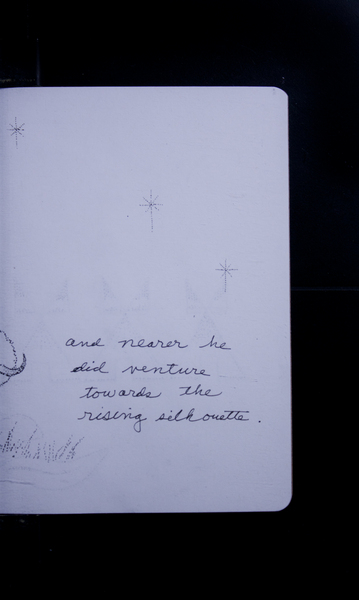 and nearer he
did venture
towards the
rising silhouette.